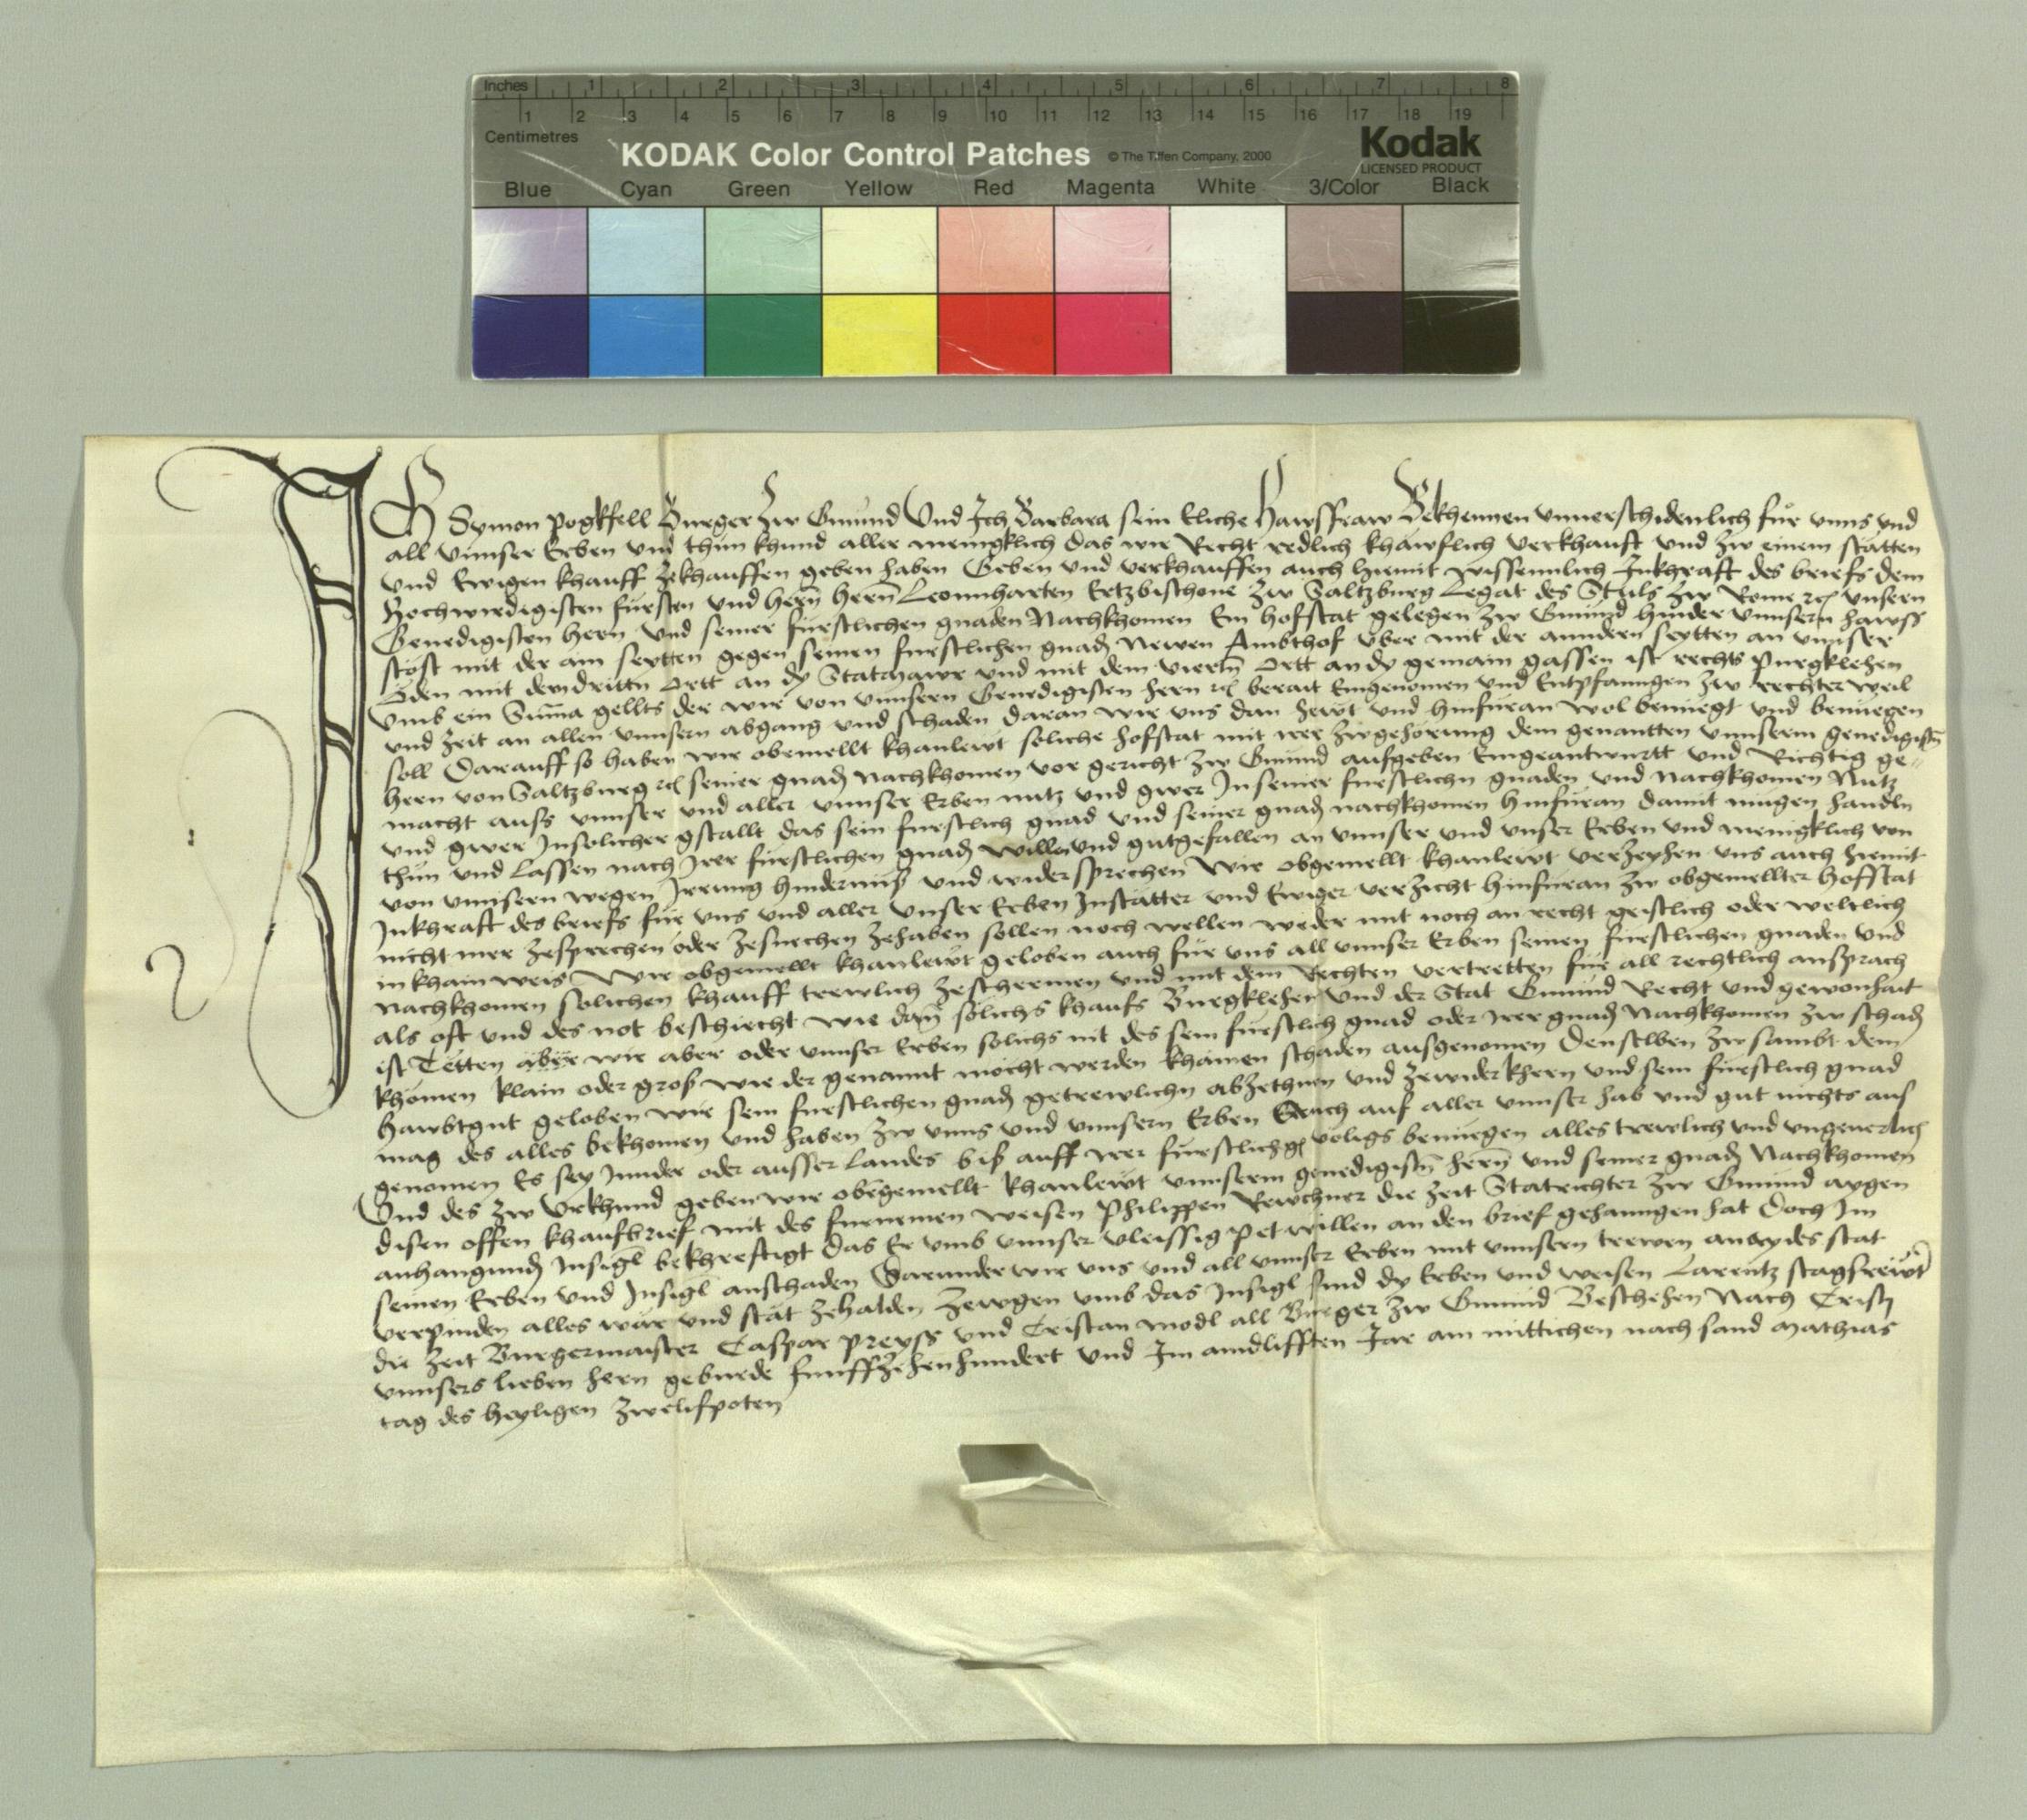 Inches 1 2 3 4 5 6 7 8
1 2 3 4 5 6 7 8 9 10 11 12 13 14 15 16 17 18 19
Centimetres
KODAK Color Control Patches © The Tiffen Company, 2000 Kodak
LICENSED PRODUCT
Blue Cyan Green Yellow Red Magenta White 3/Color Black
ICH Symon pogkfell Burger zw Gmund Und Ich Barbara sein Eliche Hawsfraw Bekhennen vnnerschidenlich fur vnns vnd
all vnnser Erben vnd thun khund aller menigklich das wir Recht redlich khawflich verkhauft vnd zw einem statten
vnd Ewigen khauff zekhauffen geben haben Geben vnd verkhauffen auch hiemit wissennlich Inkhraft des briefs dem
Hochwirdigisten fursten vnd hern hern Leonnharten Ertzbischoue zw Saltzburg Legat des Stuls zw Rome vnsern
Genedigisten hern vnd seiner furstlichen gnaden Nachkhomen Ein hofstat gelegen zw Gmund hinder vnnserm hawss
stost mit der ain seytten gegen seinen furstlichen gnaden Newen Ambthof vber mit der anndern seytten an vnnser
Oden mit dem dritten Ortt an dy Statmawr vnd mit dem vierten Ortt an dy gemain gassen ist rechts purgklehen
vmb ein Suma gellts der wir von vnnsern Genedigisten hern berait Eingenomen vnd Entpfanngen zw rechter weil
vnd zeit an allen vnnsern abgang vnd schaden daran wir vns dan hewt vnd hinfuran wol benuegt vnd benuegen
soll Darauff so haben wir obemellt khanlewt soliche hofstat mit irer zwgehorung dem genantten vnnserm genedigisten
hern von Saltzburg seiner gnaden nachkhomen vor gericht zw Gmund aufgeben Eingeantwurtt vnd Richtig ge-
macht auss vnnser vnd aller vnnser Erben nutz vnd gwer In seiner furstlichn gnaden vnd nachkhomen Nutz
vnd gwer In solicher gstallt das sein furstlich gnad vnd seiner gnaden nachkhomen hinfuran damit mugen handln
thun vnd lassen nach irer furstlichen gnaden willen vnd gutgefallen an vnnser vnd vnser Erben vnd menigklich von
von vnnsern wegen Irrung hindernuss vnd widersprechen Wir obgemellt khanlewt verzeyhen vns auch hiemit
Inkhraft des briefs fur vns vnd aller vnser Erben Instatter vnd Ewiger verzicht hinfuran zw obgemellter hofstat
nicht mer zesprechen oder zesuechen zehaben sollen noch wellen weder mit noch an recht geistlich oder weltlich
in khain weis Wir obgemellt khanlewt geloben auch fur vns all vnnser Erben seinen furstlichen gnaden vnd
nachkhomen solichen khauff trewlich zeschermen vnd mit dem Rechten vertretten fur all rechtlich ansprach
als oft vnd des not beschiecht wie dan solichs khaufs Burgklehen vnd der Stat Gmund Recht vnd gewonhait
ist Tetten aber wir aber oder vnnser Erben solichs nit des sein furstlich gnad oder irer gnaden Nachkhomen zw schaden
khomen klain oder gross wie der genannt mocht werden khainen schaden ausgenomen Denselben zw sambt dem
hawbtgut geloben wir sein furstlichen gnaden getrewlichn abzethuen vnd zewiderkhern vnd sein furstlich gnad
mag des alles bekhomen vnd haben zw vnns vnd vnnsern Erben Auch auf aller vnnser hab vnd gut nichts aus
genomen Es sey Innder oder ausser Landes biss auff irer furstlich g voligs benuegen alles trewlich vnd vngeuerlich
Vnd des zw vrkhund geben wir obegemellt khanlewt vnnserm genedigisten hern vnd seiner gnaden Nachkhomen
disen offen khaufbrief mit des furnemen weisen Philippen Rewchner die zeit Statrichter zw Gmund aygen
anhangunden Insigl bekhreftigt Das Er vmb vnnser vleissig pet willen an den brief gehanngen hat Doch Im
seinen Erben vnd Insigl anschaden Darunder wir vns vnd all vnnser Erben mit vnnsern trewen an aydes stat
verpinden alles war vnd stat zehalden zewgen vmb das Insigl sind dy Erben vnd weisen Larentz stagkrewt
die zeit Burgermaister Caspar preyss vnd Cristan modl all Burger zw Gmund Beschehen Nach Cristi
vnnsers lieben hern geburde funffzehenhundert vnd Im aindlifften Jar am mittichen nach sand mathias
tag des heyligen zwelifpoten